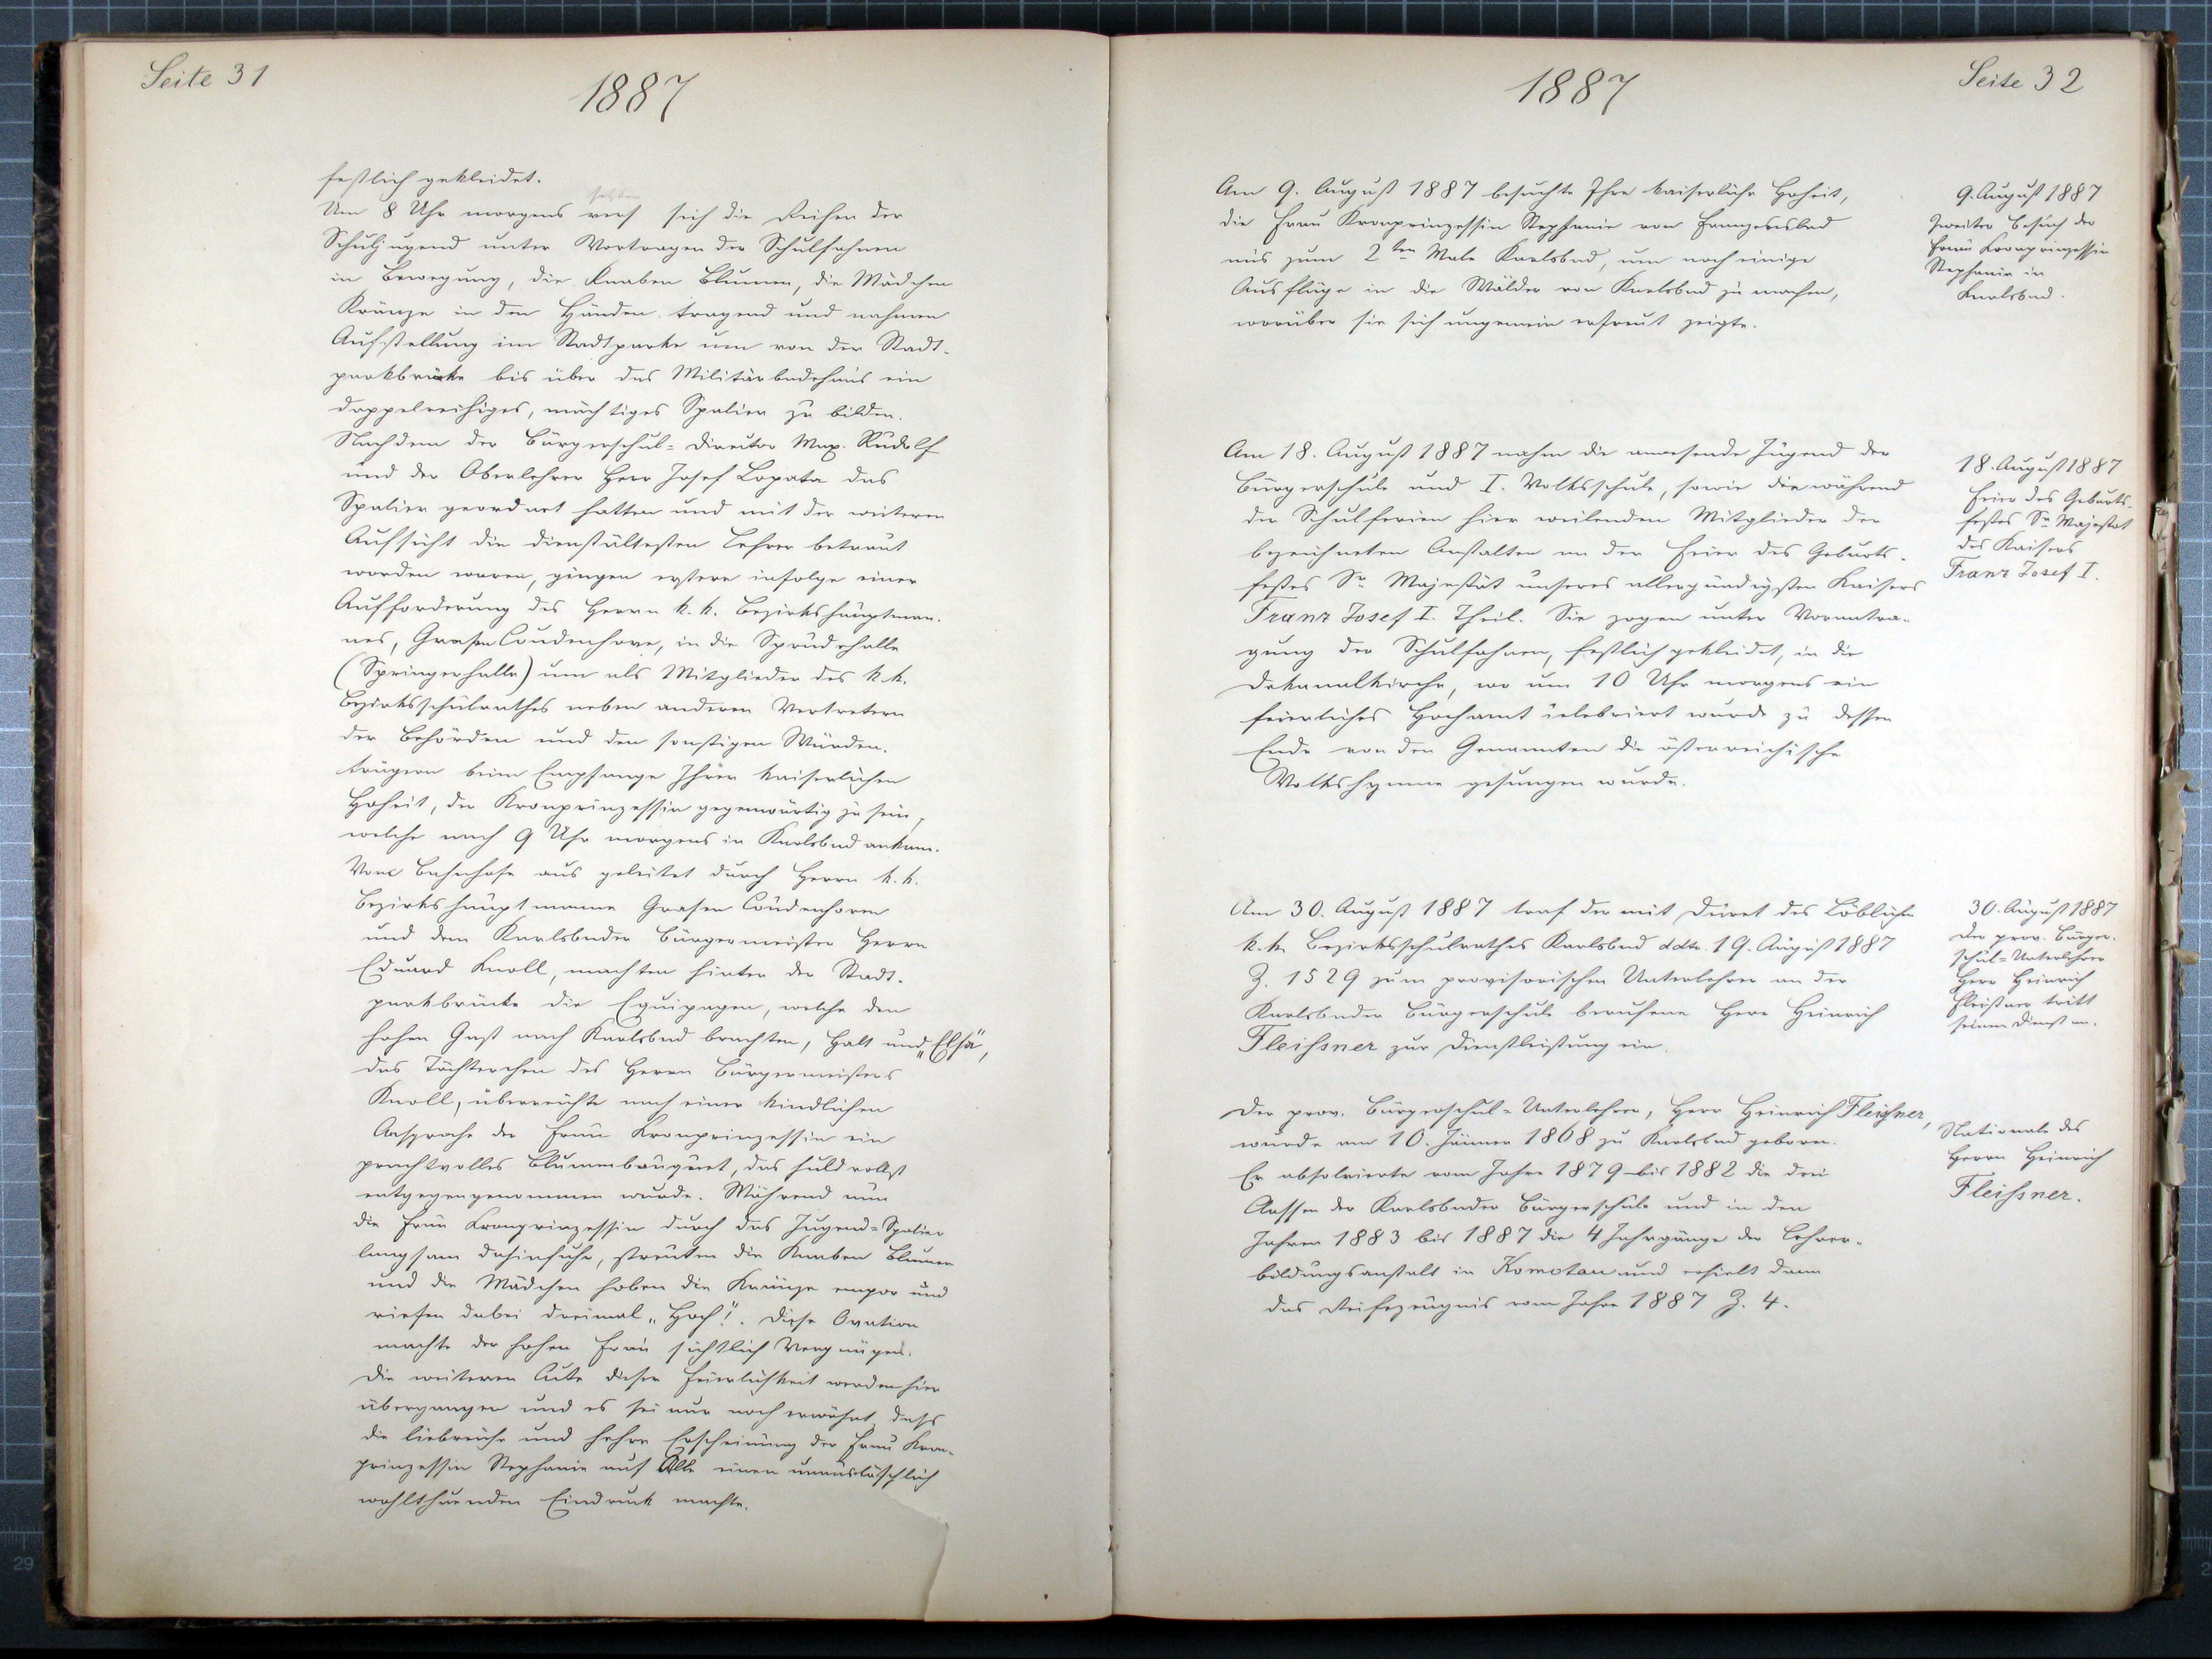 Seite 31
1887
festlich gekleidet.
setzten
Um 8 Uhr morgens sich die Reihen der
Schuljugend unter Vortragen der Schulfahnen
in Bewegung, die Knaben Blumen, die Mädchen
Kränze in den Händen tragend und nahmen
Aufstellung im Stadtparke um von der Stadt-
parkbrücke bis über das Militärbadehaus ein
doppelreihiges, mächtiges Spalier zu bilden.
Nachdem der Bürgerschul-Director Max. Rudolf
und der Oberlehrer Herr Josef Lopata das
Spalier geordnet hatten und mit der weiteren
Aufsicht die dienstältesten Lehrer betraut
worden waren, gingen erstere infolge einer
Aufforderung des Herrn k. k. Bezirkshauptman-
nes, Grafen Coudenhove, in die Sprudelhalle
(Springerhalle) um als Mitglieder des k. k.
Bezirksschulrathes neben anderen Vertretern
der Behörden und den sonstigen Würden-
trägern beim Empfange Ihrer kaiserlichen
Hoheit, der Kronprinzessin gegenwärtig zu sein,
welche nach 9 Uhr morgens in Karlsbad ankam.
Vom Bahnhofe aus geleitet durch Herrn k. k.
Bezirkshauptmanne Grafen Coudenhoven
und dem Karlsbader Bürgermeister Herrn
Eduard Knoll, machten hinter der Stadt-
parkbrücke die Equipagen, welche den
hohen Gast nach Karlsbad brachten, Halt und „Elsa“,
das Töchterchen des Herrn Bürgermeisters
Knoll, überreichte nach einer kindlichen
Ansprache der Frau Kronprinzessin ein
prachtvolles Blumenbouquet, das huldvollst
entgegengenommen wurde. Während nun
die Frau Kronprinzessin durch das Jugend-Spalier
langsam dahinfuhr, streuten die Knaben Blumen
und die Mädchen hoben die Kränze empor und
riefen dabei dreimal „Hoch“!. Diese Ovation
machte der hohen Frau sichtlich Vergnügen.
Die weiteren Acte dieser Feierlichkeit werden hier
übergangen und es sei nur noch erwähnt, dass
die liebreiche und hehre Erscheinung der Frau Kron-
prinzessin Stephanie auf Alle einen unauslöschlich
wohlthuenden Eindruck machte.
1887
Seite 32
Am 9. August 1887 besuchte Ihre kaiserliche Hoheit,
die Frau Kronprinzessin Stephanie von Franzensbad
aus zum 2ten Male Karlsbad, um noch einige
Ausflüge in die Wälder von Karlsbad zu machen,
worüber sie sich ungemein erfreut zeigte.
9. August 1887
Zweiter Besuch der
Frau Kronprinzessin
Stephanie in
Karlsbad.
Am 18. August 1887 nahm die anwesende Jugend der
Bürgerschule und I. Volksschule, sowie die während
der Schulferien hier weilenden Mitglieder der
bezeichneten Anstalten an der Feier des Geburts-
festes Sr. Majestät unseres allergnädigsten Kaisers
Franz Josef I. Theil. Sie zogen unter Vorantra-
gung der Schulfahnen, festlich gekleidet, in die
Dekanalkirche, wo um 10 Uhr morgens ein
feierliches Hochamt celebriert wurde zu dessen
Ende von den Genannten die österreichische
Volkshymne gesungen wurde.
18. August 1887
Feier des Geburts-
festes Sr. Majestät
des Kaisers
Franz Josef I.
Am 30. August 1887 traf der mit Decret des Löblichen
k. k. Bezirksschulrathes Karlsbad ddto. 19. August 1887
Z. 1529 zum provisorischen Unterlehrer an der
Karlsbader Bürgerschule berufene Herr Heinrich
Fleissner zur Dienstleistung ein.
30. August 1887
Der prov. Bürger-
schul-Unterlehrer
Herr Heinrich
Fleissner tritt
seinen Dienst an.
Der prov. Bürgerschul-Unterlehrer, Herr Heinrich Fleissner,
wurde am 10. Jänner 1868 zu Karlsbad geboren.
Er absolvierte vom Jahre 1879 bis 1882 die drei
Classen der Karlsbader Bürgerschule und in den
Jahren 1883 bis 1887 die 4 Jahrgänge der Lehrer-
bildungsanstalt in Komotau und erhielt dann
das Reifezeugnis vom Jahre 1887 Z. 4.
Nationale des
Herrn Heinrich
Fleissner.
29